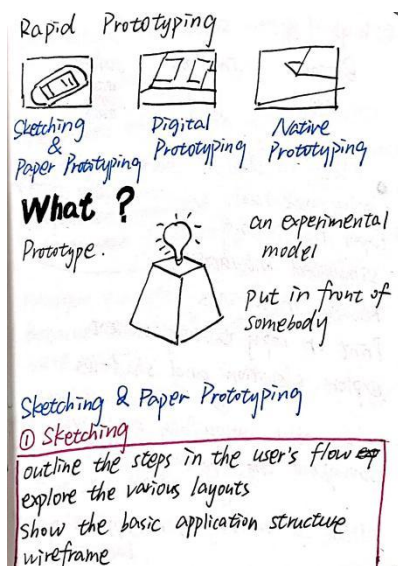 Rapid Prototyping
Sketching & Paper Prototyping
Digital Prototyping
Native Prototyping
What ?
Prototype.
an experimental
model
put in front of
somebody
Sketching & Paper Prototyping
① Sketching
outline the steps in the user's flow
explore the various layouts
show the basic application structure
wireframe